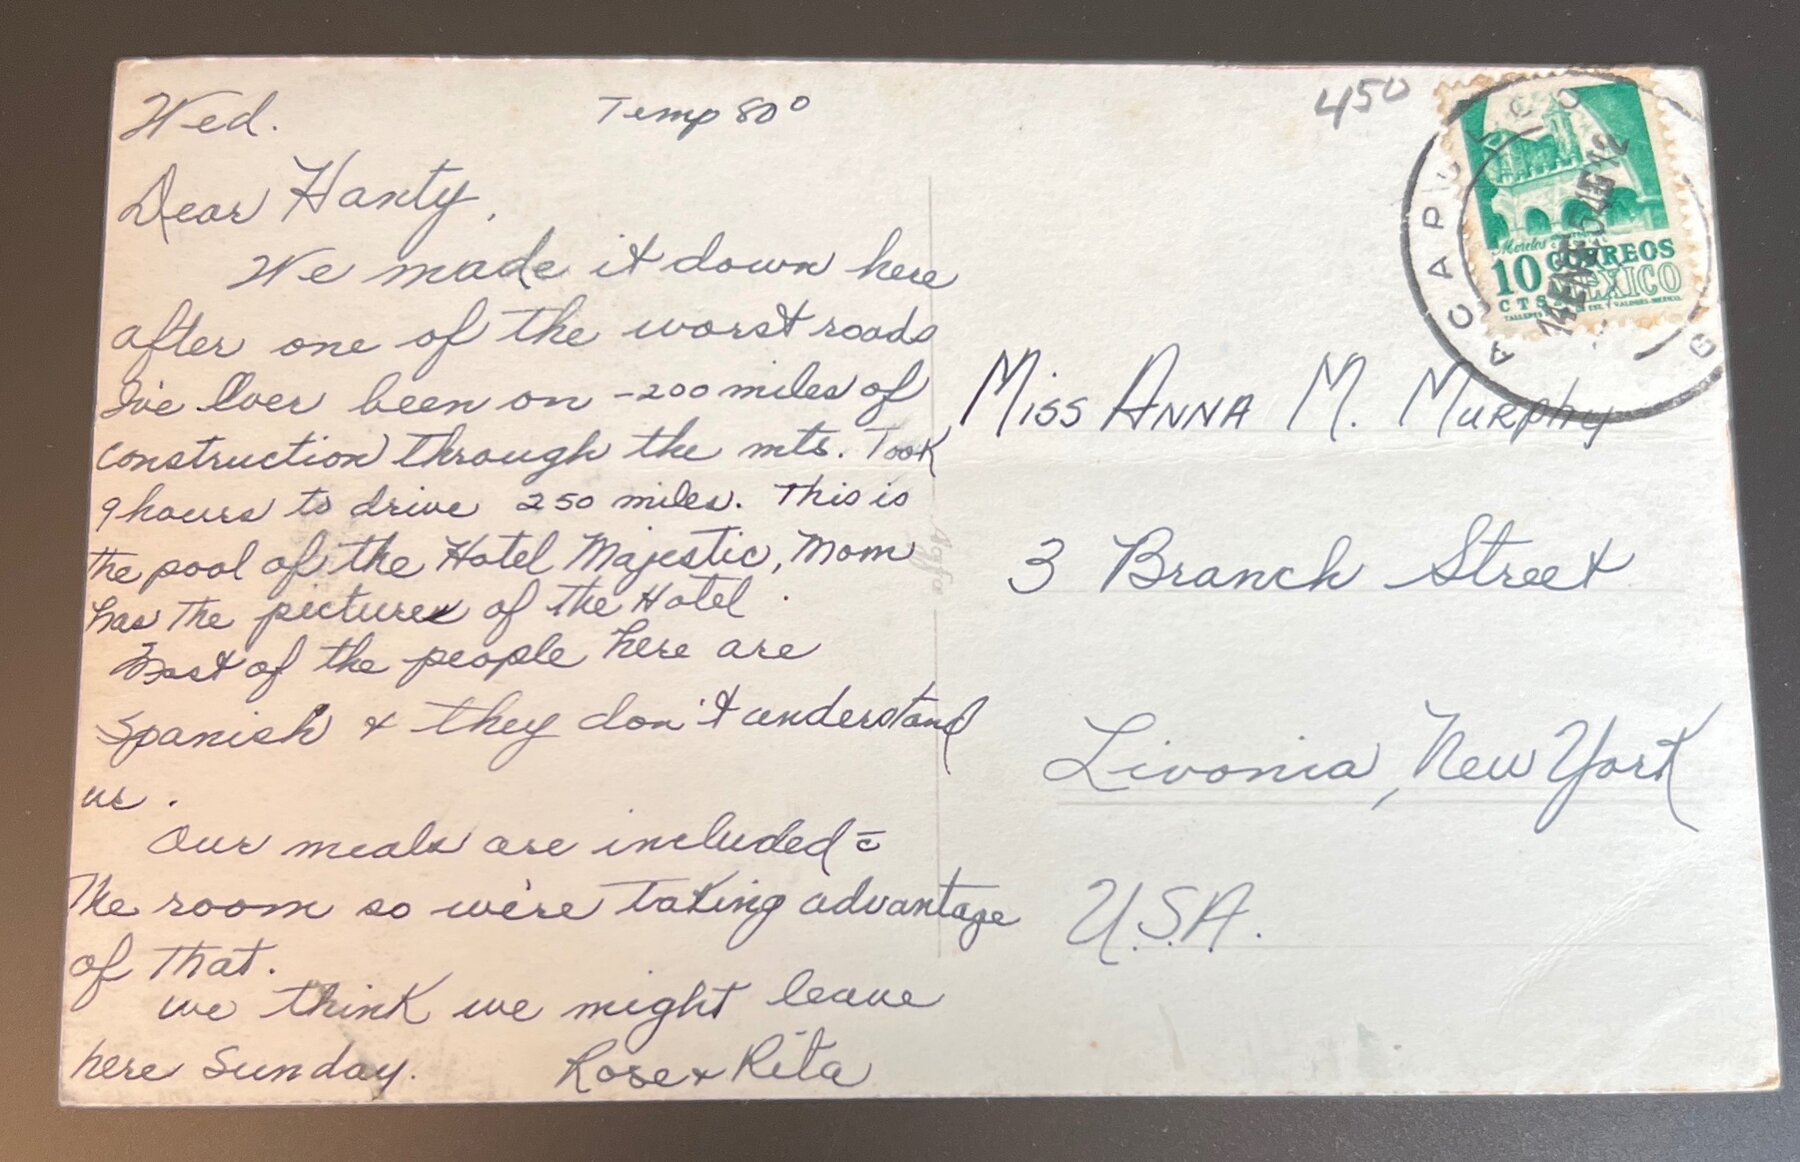 Wed. Temp 80°
Dear Hanty,
We made it down here
after one of the worst roads
I've ever been on - 200 miles of
construction through the mts. Took
9 hours to drive 250 miles. This is
the pool of the Hotel Majestic, Mom
has the pictures of the Hotel.
Most of the people here are
Spanish & they don't understand
us.
Our meals are included c̄
the room so we're taking advantage
of that.
we think we might leave
here Sunday. Rose & Rita
Agfa
450
ACAPULCO
G
14 ENE 55
12
Morelos
10 CORREOS
CTS MEXICO
Miss Anna M. Murphy
3 Branch Street
Livonia, New York
U.S.A.